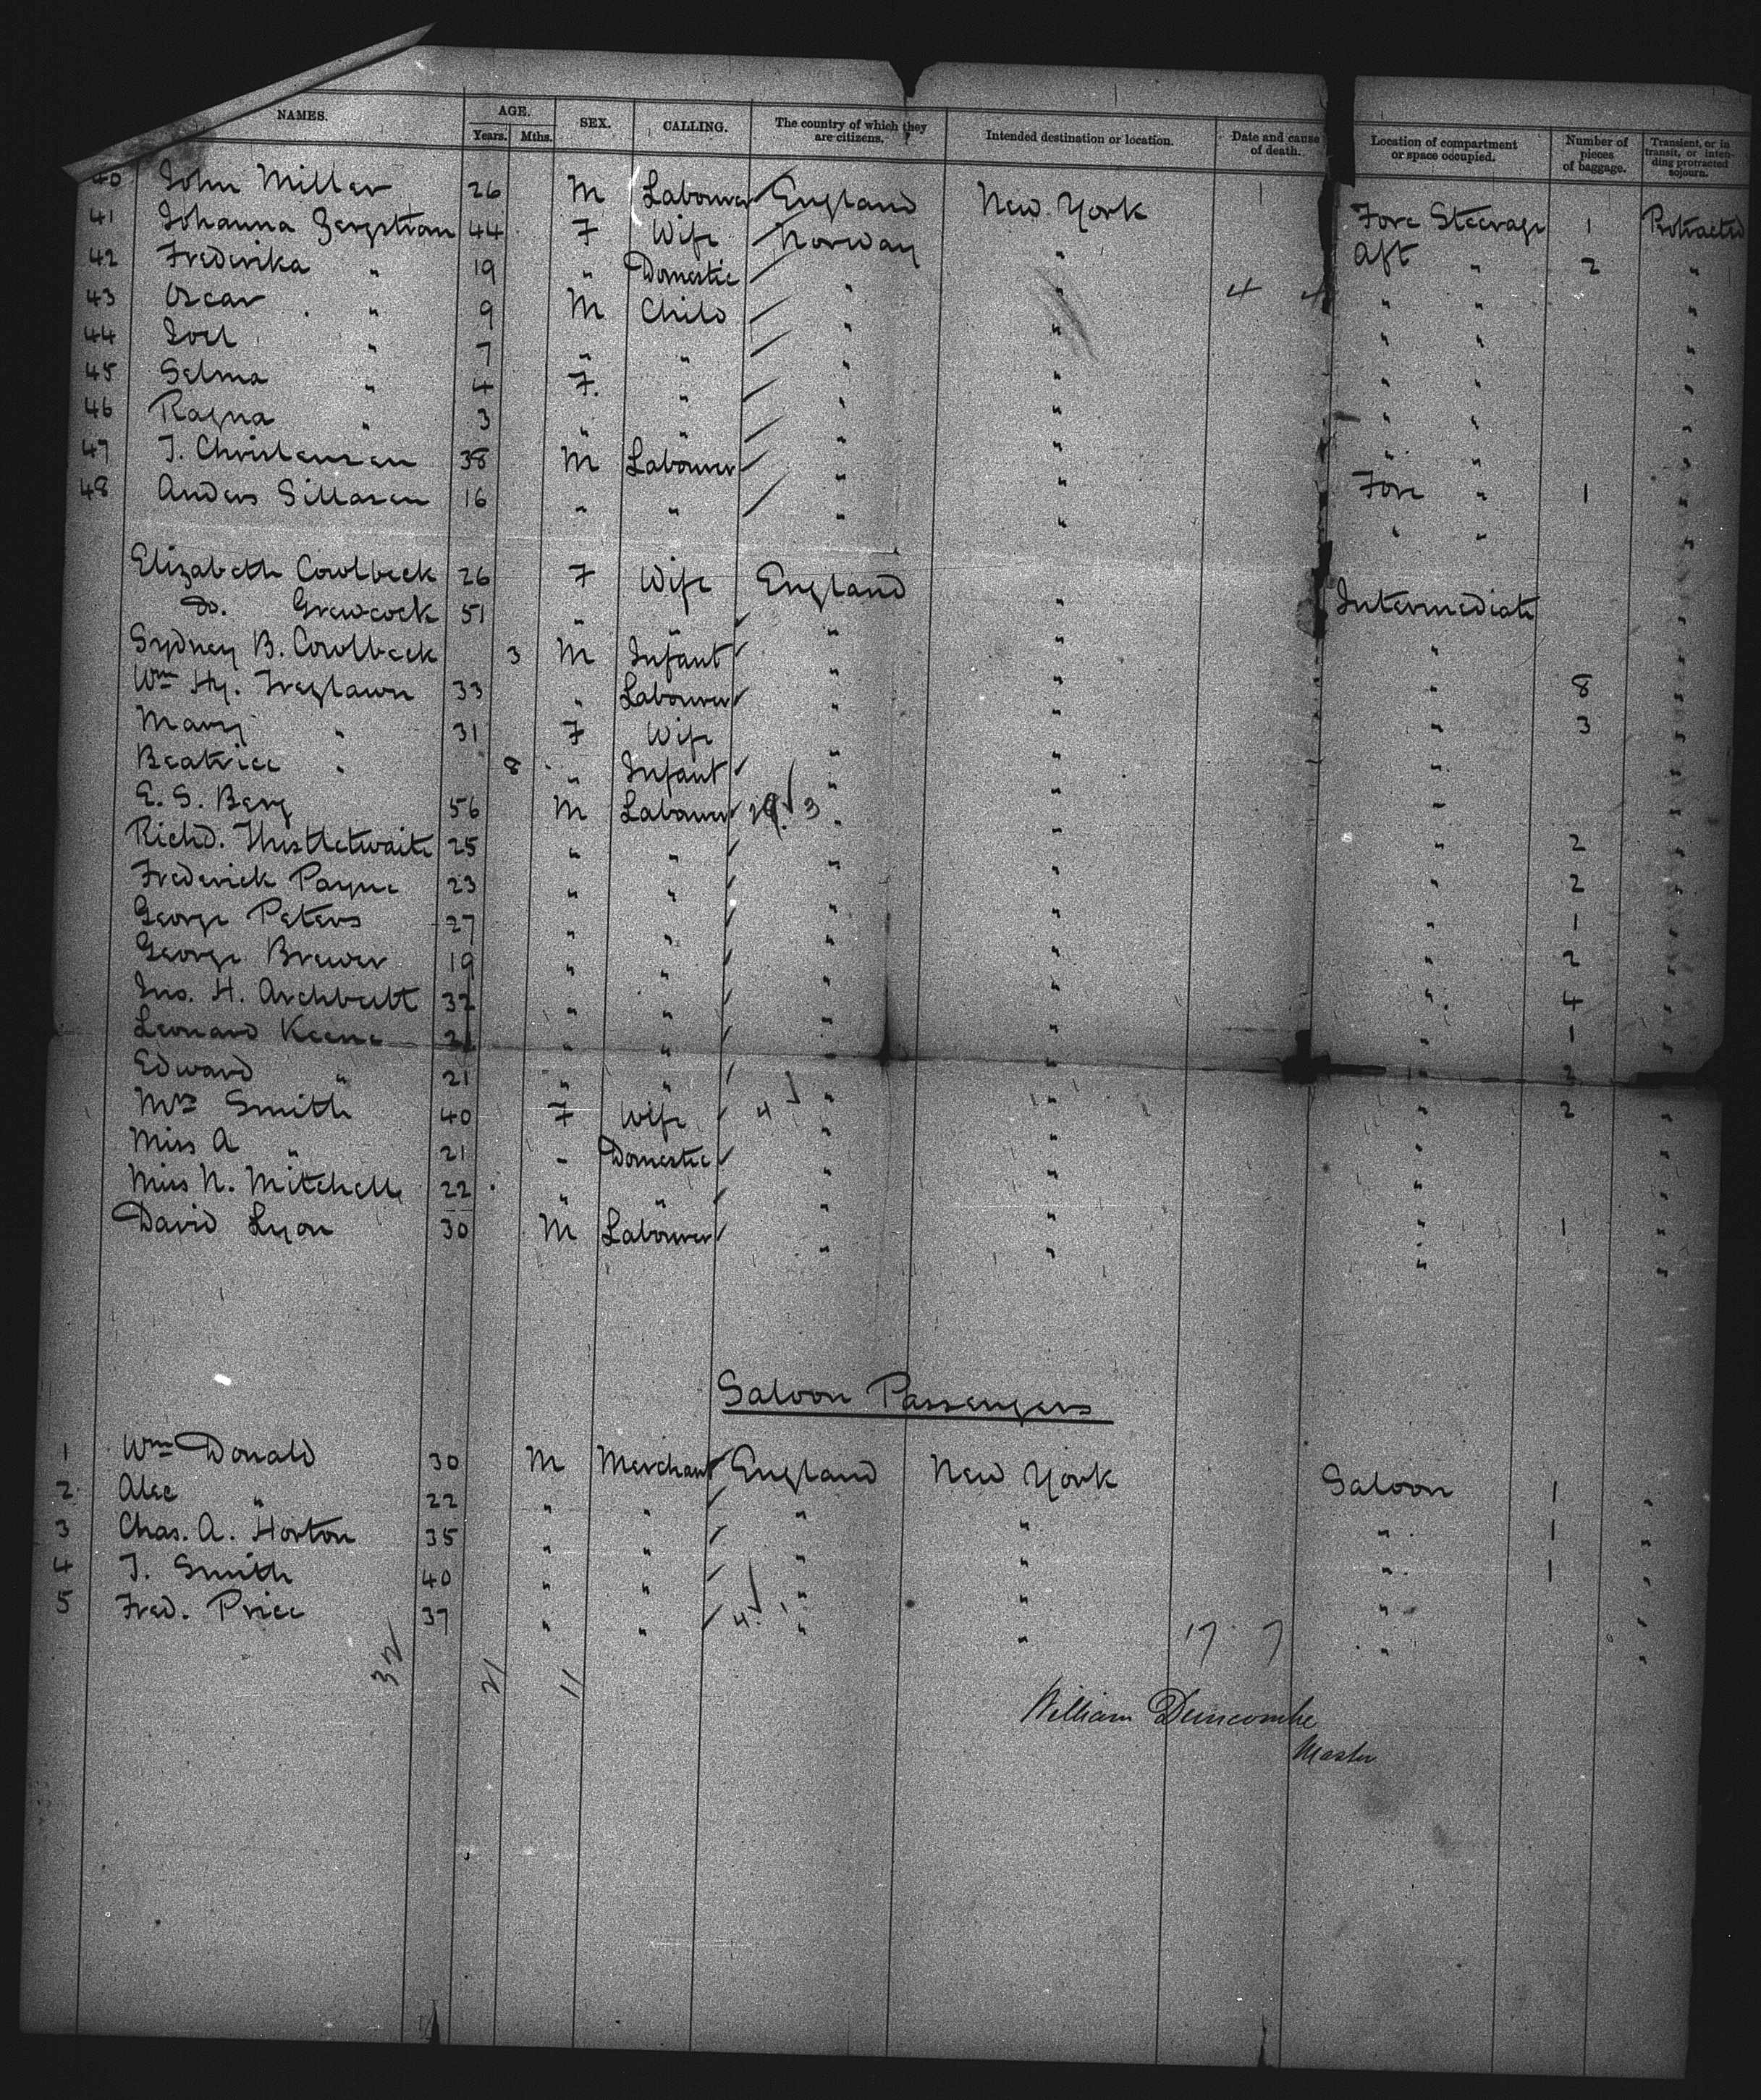 NAMES. AGE. Years. Mths. SEX. CALLING. The country of which they are citizens. Intended destination or location. Date and cause of death. Location of compartment or space occupied. Number of pieces of baggage. Transient, or in transit, or intending protracted sojourn.
40 John Miller 26 M Labourer England New York Fore Steerage 1 Protracted
41 Johanna 44 F Wife Norway " Aft " 2 "
42 Frederika " 19 " Domestic " " " " "
43 Oscar " 9 M Child " " " " "
44 Joel " 7 " " " " " " "
45 Selma " 4 F. " " " " " "
46 Ragna " 3 " " " " " " "
47 J. Christensen 38 M Labourer " " Fore " 1 "
48 Anders 16 " " " " " " "
Elizabeth Cowlbeck 26 F Wife England " Intermediate "
Do. Grewcock 51 " " " " " "
Sydney B. Cowlbeck 3 M Infant " " " 8 "
Wm Hy. 33 " Labourer " " " 3 "
Mary " 31 F Wife " " " "
Beatrice " 8 " Infant " " " "
E. S. Berg 56 M Labourer " " " 2 "
Richd. Thistletwaite 25 " " " " " 2 "
Frederick Payne 23 " " " " " 1 "
George Peters 27 " " " " " 2 "
George Brewer 19 " " " " " 4 "
Jno. H. 32 " " " " " 1 "
Leonard Keene " " " " " 2 "
Edward " 21 " " " " " 2 "
Mrs Smith 40 F Wife " " " "
Miss A " 21 " Domestic " " " "
Miss N. Mitchell 22 " " " " " 1 "
David Lyon 30 M Labourer " " " "
Saloon Passengers
1 Wm Donald 30 M Merchant England New York Saloon 1 "
2 Alec " 22 " " " " " 1 "
3 Chas. A. Horton 35 " " " " " 1 "
4 J. Smith 40 " " " " " "
5 Fred. Price 37 " " " " " "
32 21 11
17 7
William Duncombe
Master